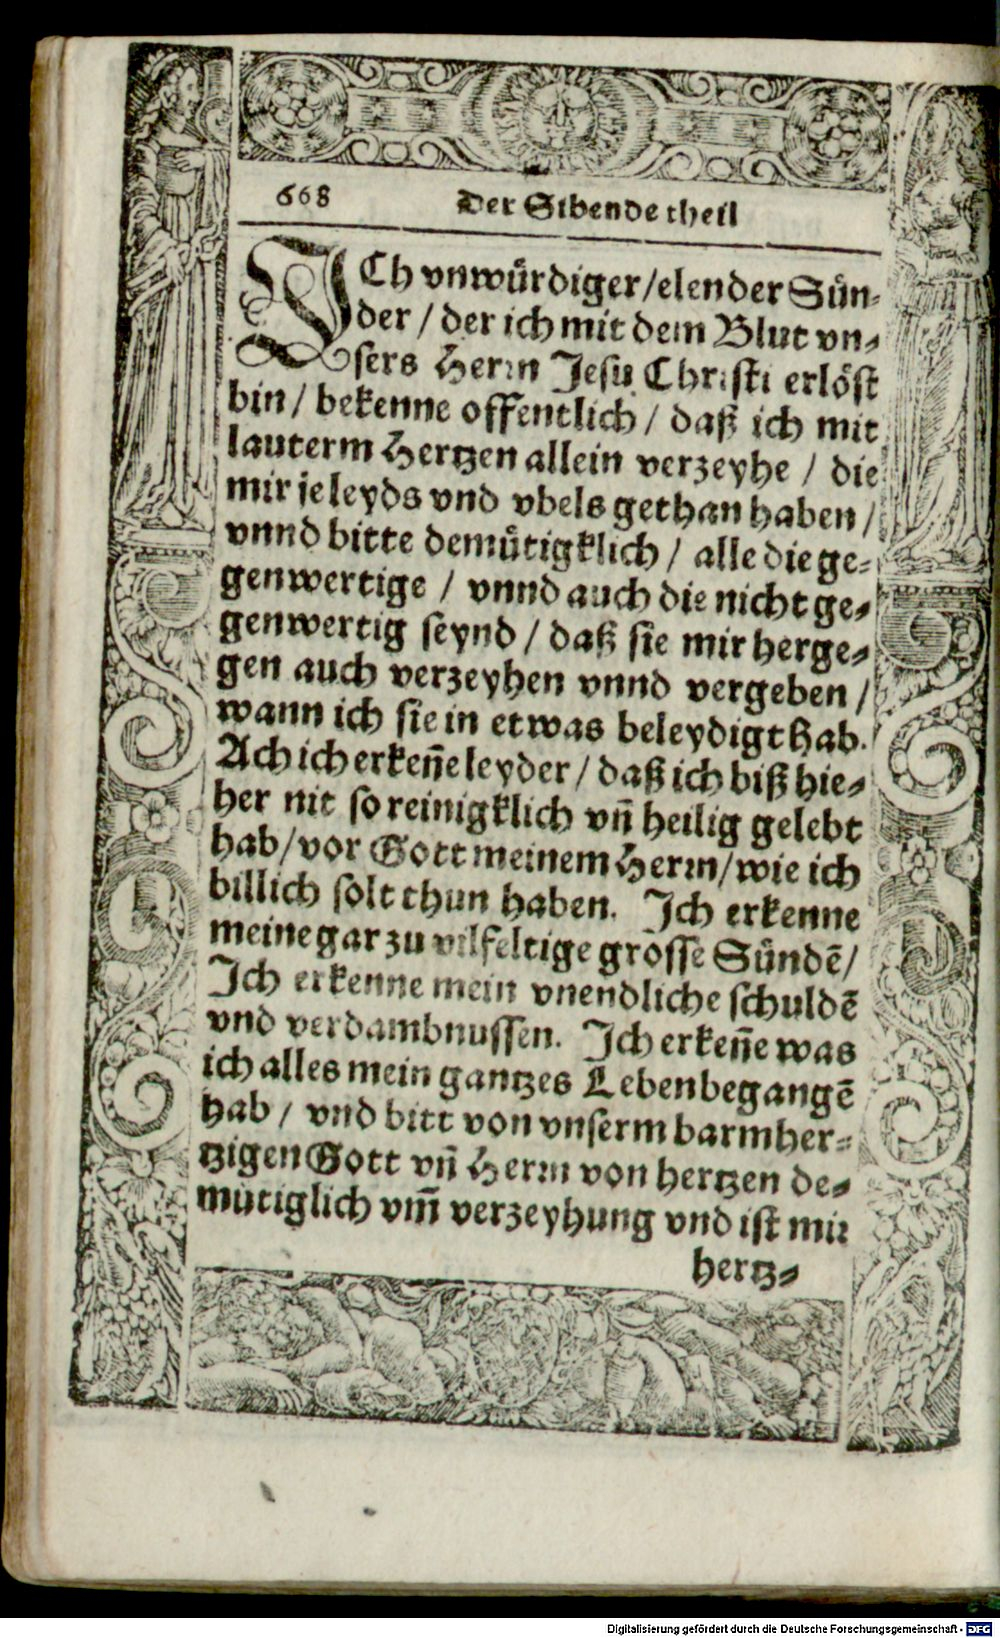 668 Der Sibende theil
ICh vnwuͤrdiger/elender Suͤn-
der / der ich mit dem Blut vn-
sers Herrn Jesu Christi erloͤst
bin / bekenne offentlich / daß ich mit
lauterm Hertzen allein verzeyhe / die
mir je leyds vnd vbels gethan haben /
vnnd bitte demuͤtigklich / alle die ge-
genwertige / vnnd auch die nicht ge-
genwertig seynd / daß sie mir herge-
gen auch verzeyhen vnnd vergeben /
wann ich sie in etwas beleydigt hab.
Ach ich erkeñe leyder / daß ich biß hie-
her nit so reinigklich vñ heilig gelebt
hab/vor Gott meinem Herrn/wie ich
billich solt thun haben. Ich erkenne
meine gar zu vilfeltige grosse Suͤndẽ/
Ich erkenne mein vnendliche schuldẽ
vnd verdambnussen. Ich erkeñe was
ich alles mein gantzes Leben begangẽ
hab / vnd bitt von vnserm barmher-
tzigen Gott vñ Herrn von hertzen de-
mutiglich vm̃ verzeyhung vnd ist mir
hertz-
Digitalisierung gefördert durch die Deutsche Forschungsgemeinschaft - DFG